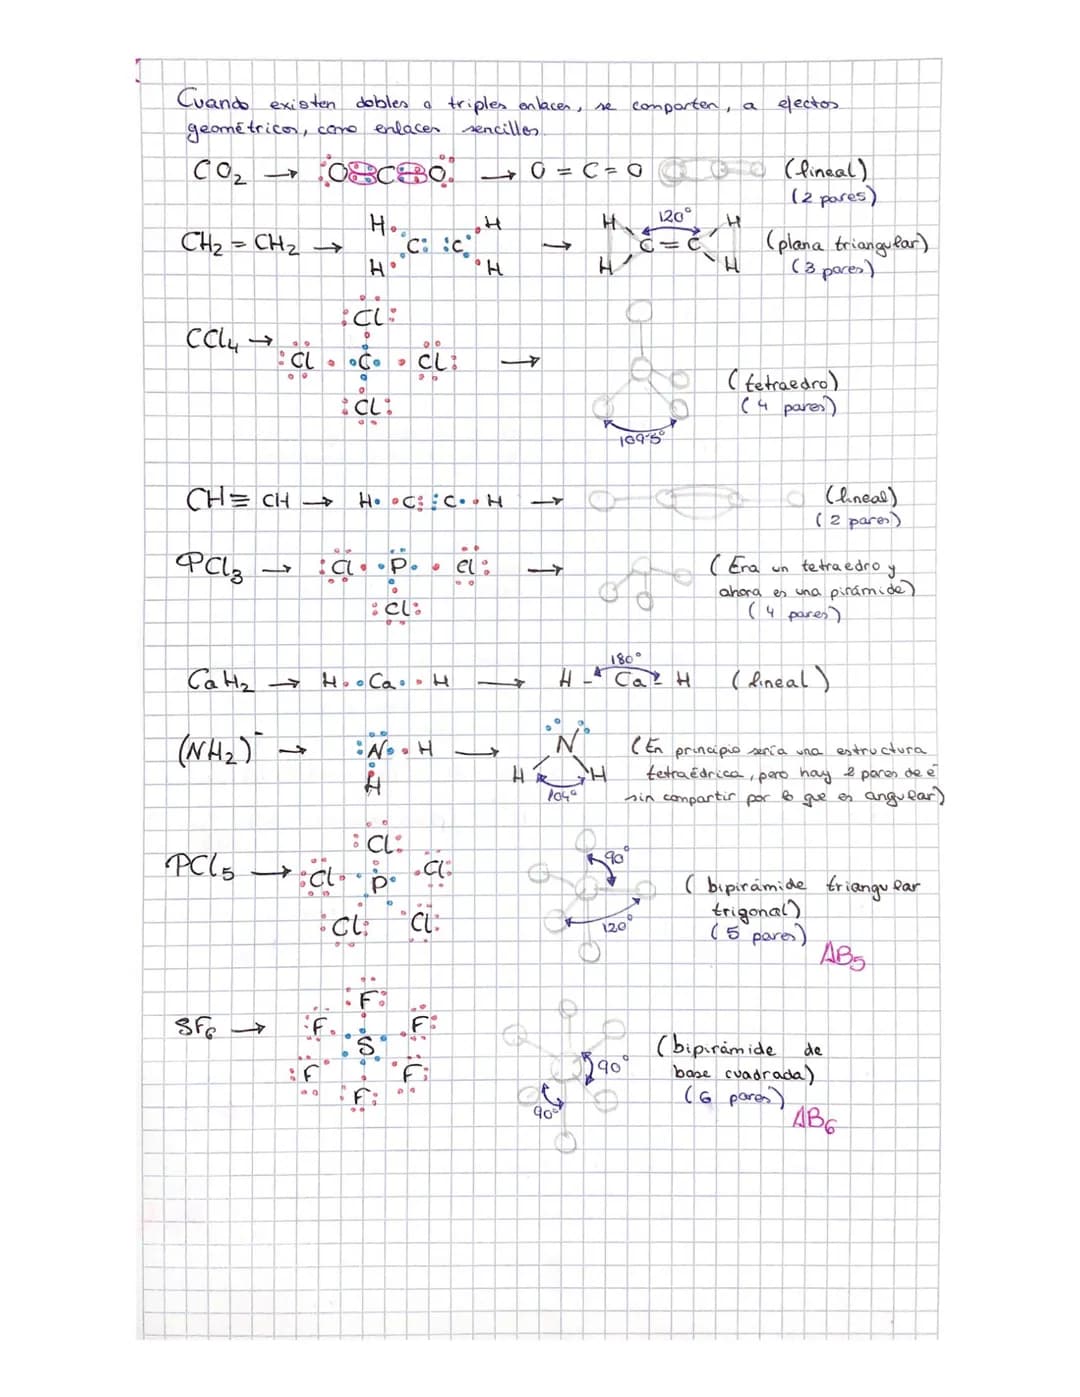 Cuando existen dobles o triples enlaces, se comporten, a efectos
geométricos, como enlaces sencillos.
CO₂ → :O::C::O: → O = C = O (lineal)
(2 pares)
CH₂ = CH₂ → H H C: :C H H → H H C = C H H 120° (plana triangular)
(3 pares)
CCl₄ → Cl Cl C Cl Cl → 109'5° (tetraedro)
(4 pares)
CH ≡ CH → H· ·C⋮ ⋮C· ·H → (lineal)
(2 pares)
PCl₃ → :Cl· ·P· ·Cl: → (Era un tetraedro y
:Cl: ahora es una pirámide)
(4 pares)
CaH₂ → H· ·Ca· ·H → H - Ca - H 180° (lineal)
(NH₂)⁻ → :N· ·H → N (En principio sería una estructura
H H H tetraédrica, pero hay 2 pares de e⁻
104° sin compartir por lo que es angular)
PCl₅ → Cl Cl P Cl Cl Cl 90° (bipirámide triangular
120° trigonal)
(5 pares)
AB₅
SF₆ → F F F S F F F 90° (bipirámide de
90° base cuadrada)
(6 pares)
AB₆